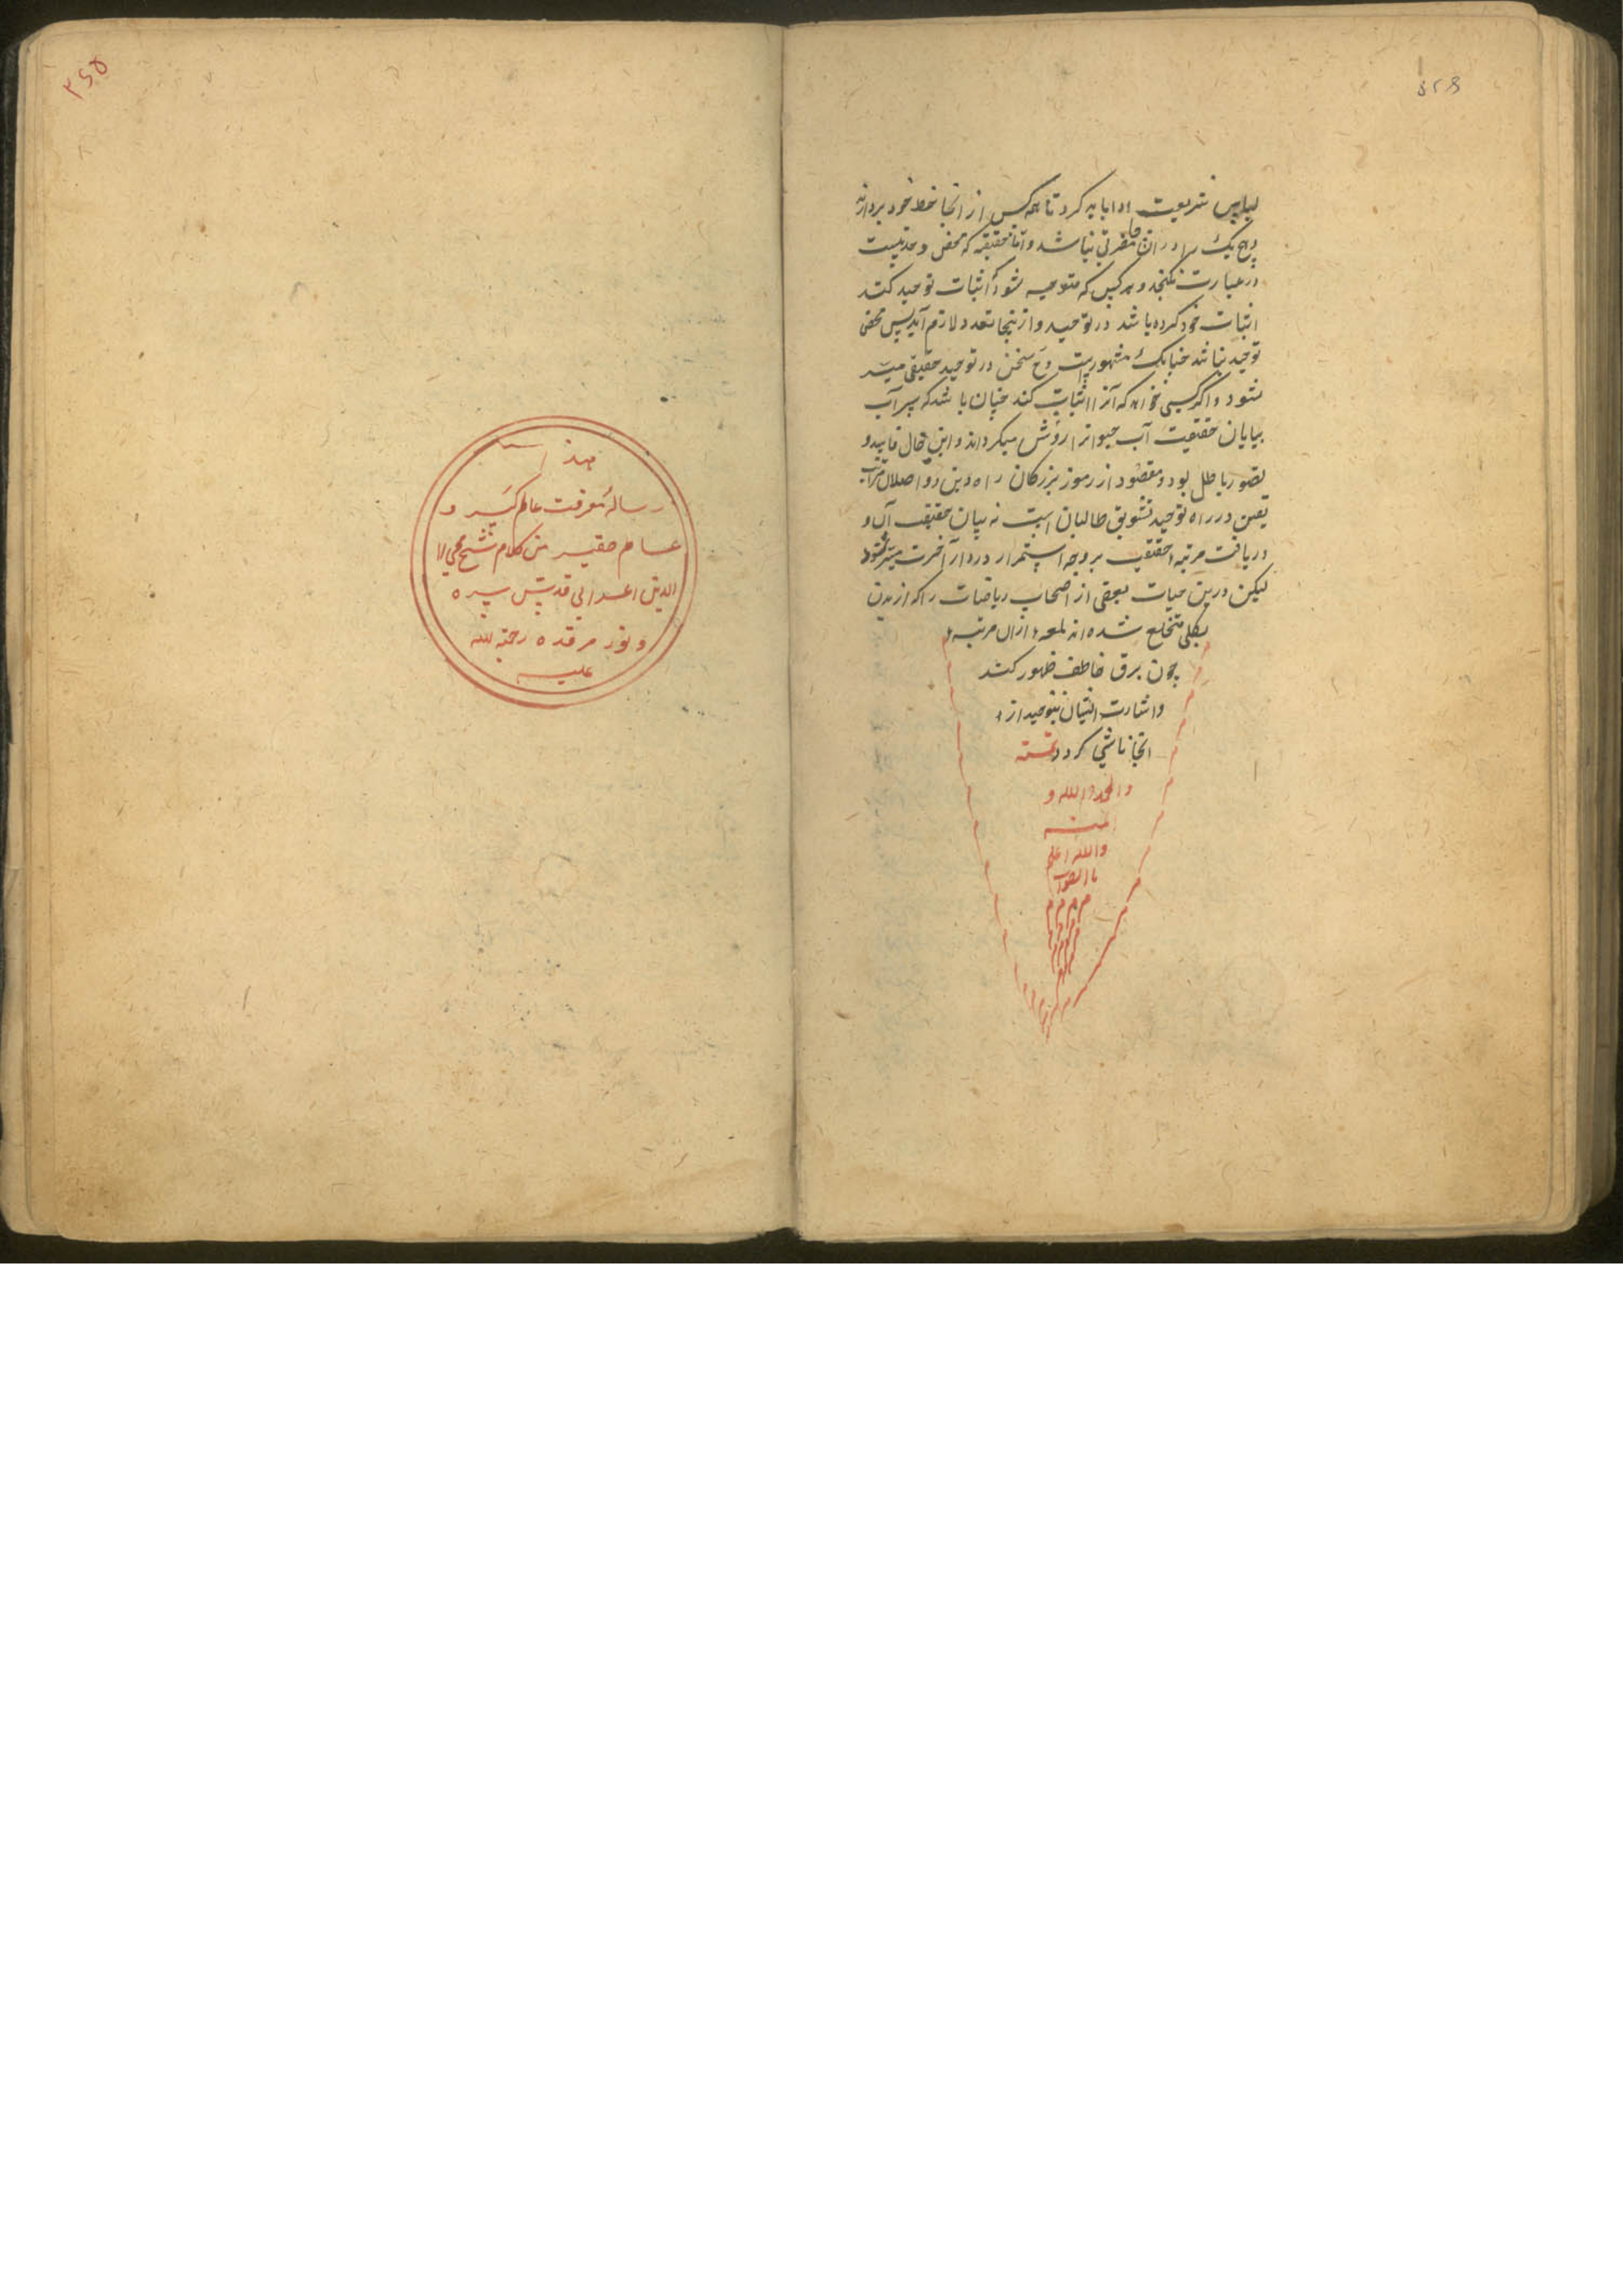 لباس شریعت ادا باید کرد تا همه کس از انجا حظ خود بردارند
و هیچ یک را در ان مضرتی نباشد و اما حقیقة که محض وحدتیست
در عبارت نکنجد و هر کس که متوجه شود که اثبات توحید کند
اثبات خود کرده باشد در توحید و ازینجا تعدد لازم آید پس محض
توحید نباشد چنانک مشهورست و ح سخن در توحید حقیقی میسر
نشود و اکر کسی خواهد که آنرا اثبات کند چنان باشد که سراب
بیابان حقیقت آب حیوانرا روشن میکرداند و این حال فاسد و
تصور باطل بود و مقصود از رموز بزرکان راه دین و واصلان مراتب
یقین در راه توحید تشویق طالبان است نه بیان حقیقت آن و
دریافت مرتبه حقیقت بر وجه استمرار در دار آخرت میسر شود
لیکن درین حیات بعضی از اصحاب ریاضات را که از بدن
بکلی منخلع شده اند لمعه از ان مرتبه
چون برق خاطف ظهور کند
و اشارت ایشان بتوحید از
انجا ناشی کردد تمت
والحمد الله و
منه
والله اعلم
باالصواب
م م م م
۳۶۵
هذا
رسالۀ معرفت عالم کبیر و
عالم صغیر من کلام شیخ محی ا
الدین اعرابی قدس سره
و نور مرقده رحمة الله
علیه